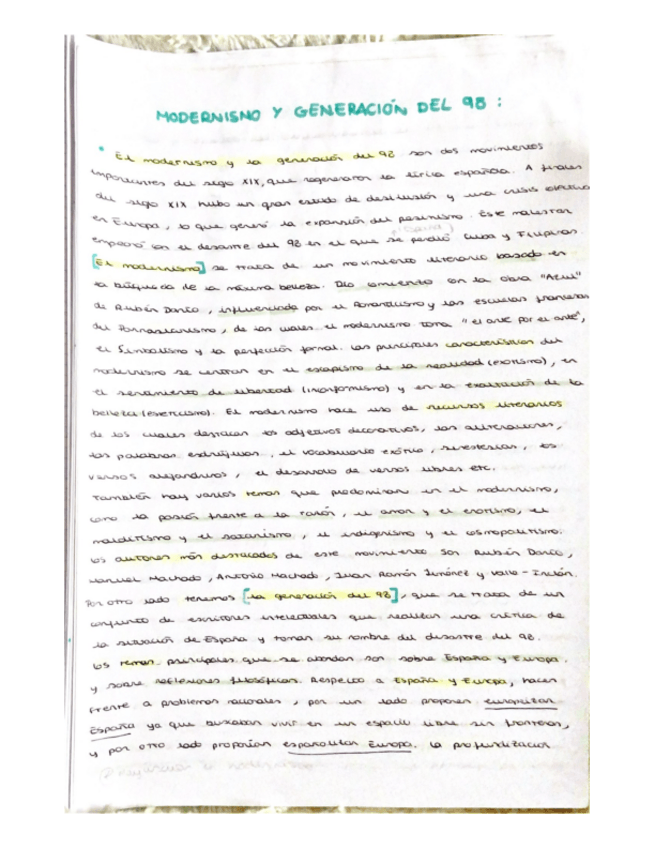 MODERNISMO Y GENERACIÓN DEL 98 :
El modernismo y la generación del 98 son dos movimientos
importantes del siglo XIX, que regeneraron la lírica española. A finales
del siglo XIX hubo un gran estado de desilusión y una crisis
en Europa, lo que generó la expansión del pesimismo. Este malestar
(España)
empezó con el desastre del 98 en el que se perdió Cuba y Filipinas.
[El modernismo] se trata de un movimiento literario basado en
la búsqueda de la máxima belleza. Dio comienzo con la obra "Azul"
de Rubén Darío, influenciado por el Romanticismo y las escuelas francesas
del Parnasianismo, de las cuales el modernismo toma "el arte por el arte",
el Simbolismo y la perfección formal. Las principales características del
modernismo se centran en el escapismo de la realidad (exotismo), en
el sentimiento de libertad (inconformismo) y en la exaltación de la
belleza (esteticismo). El modernismo hace uso de recursos literarios
de los cuales destacan los adjetivos decorativos, las aliteraciones,
las palabras esdrújulas, el vocabulario exótico, sinestesias, los
versos alejandrinos, el desarrollo de versos libres etc.
También hay varios temas que predominan en el modernismo,
como la pasión frente a la razón, el amor y el erotismo, el
malditismo y el satanismo, el indigenismo y el cosmopolitismo.
Los autores más destacados de este movimiento son Rubén Darío,
Manuel Machado, Antonio Machado, Juan Ramón Jiménez y Valle-Inclán.
Por otro lado tenemos [la generación del 98], que se trata de un
conjunto de escritores intelectuales que realizan una crítica de
la situación de España y toman su nombre del desastre del 98.
Los temas principales que se abordan son sobre España y Europa,
y sobre reflexiones filosóficas. Respecto a España y Europa, hacen
frente a problemas nacionales, por un lado proponen europeizar
España ya que buscaban vivir en un espacio libre sin fronteras,
y por otro lado proponían españolizar Europa. La profundización